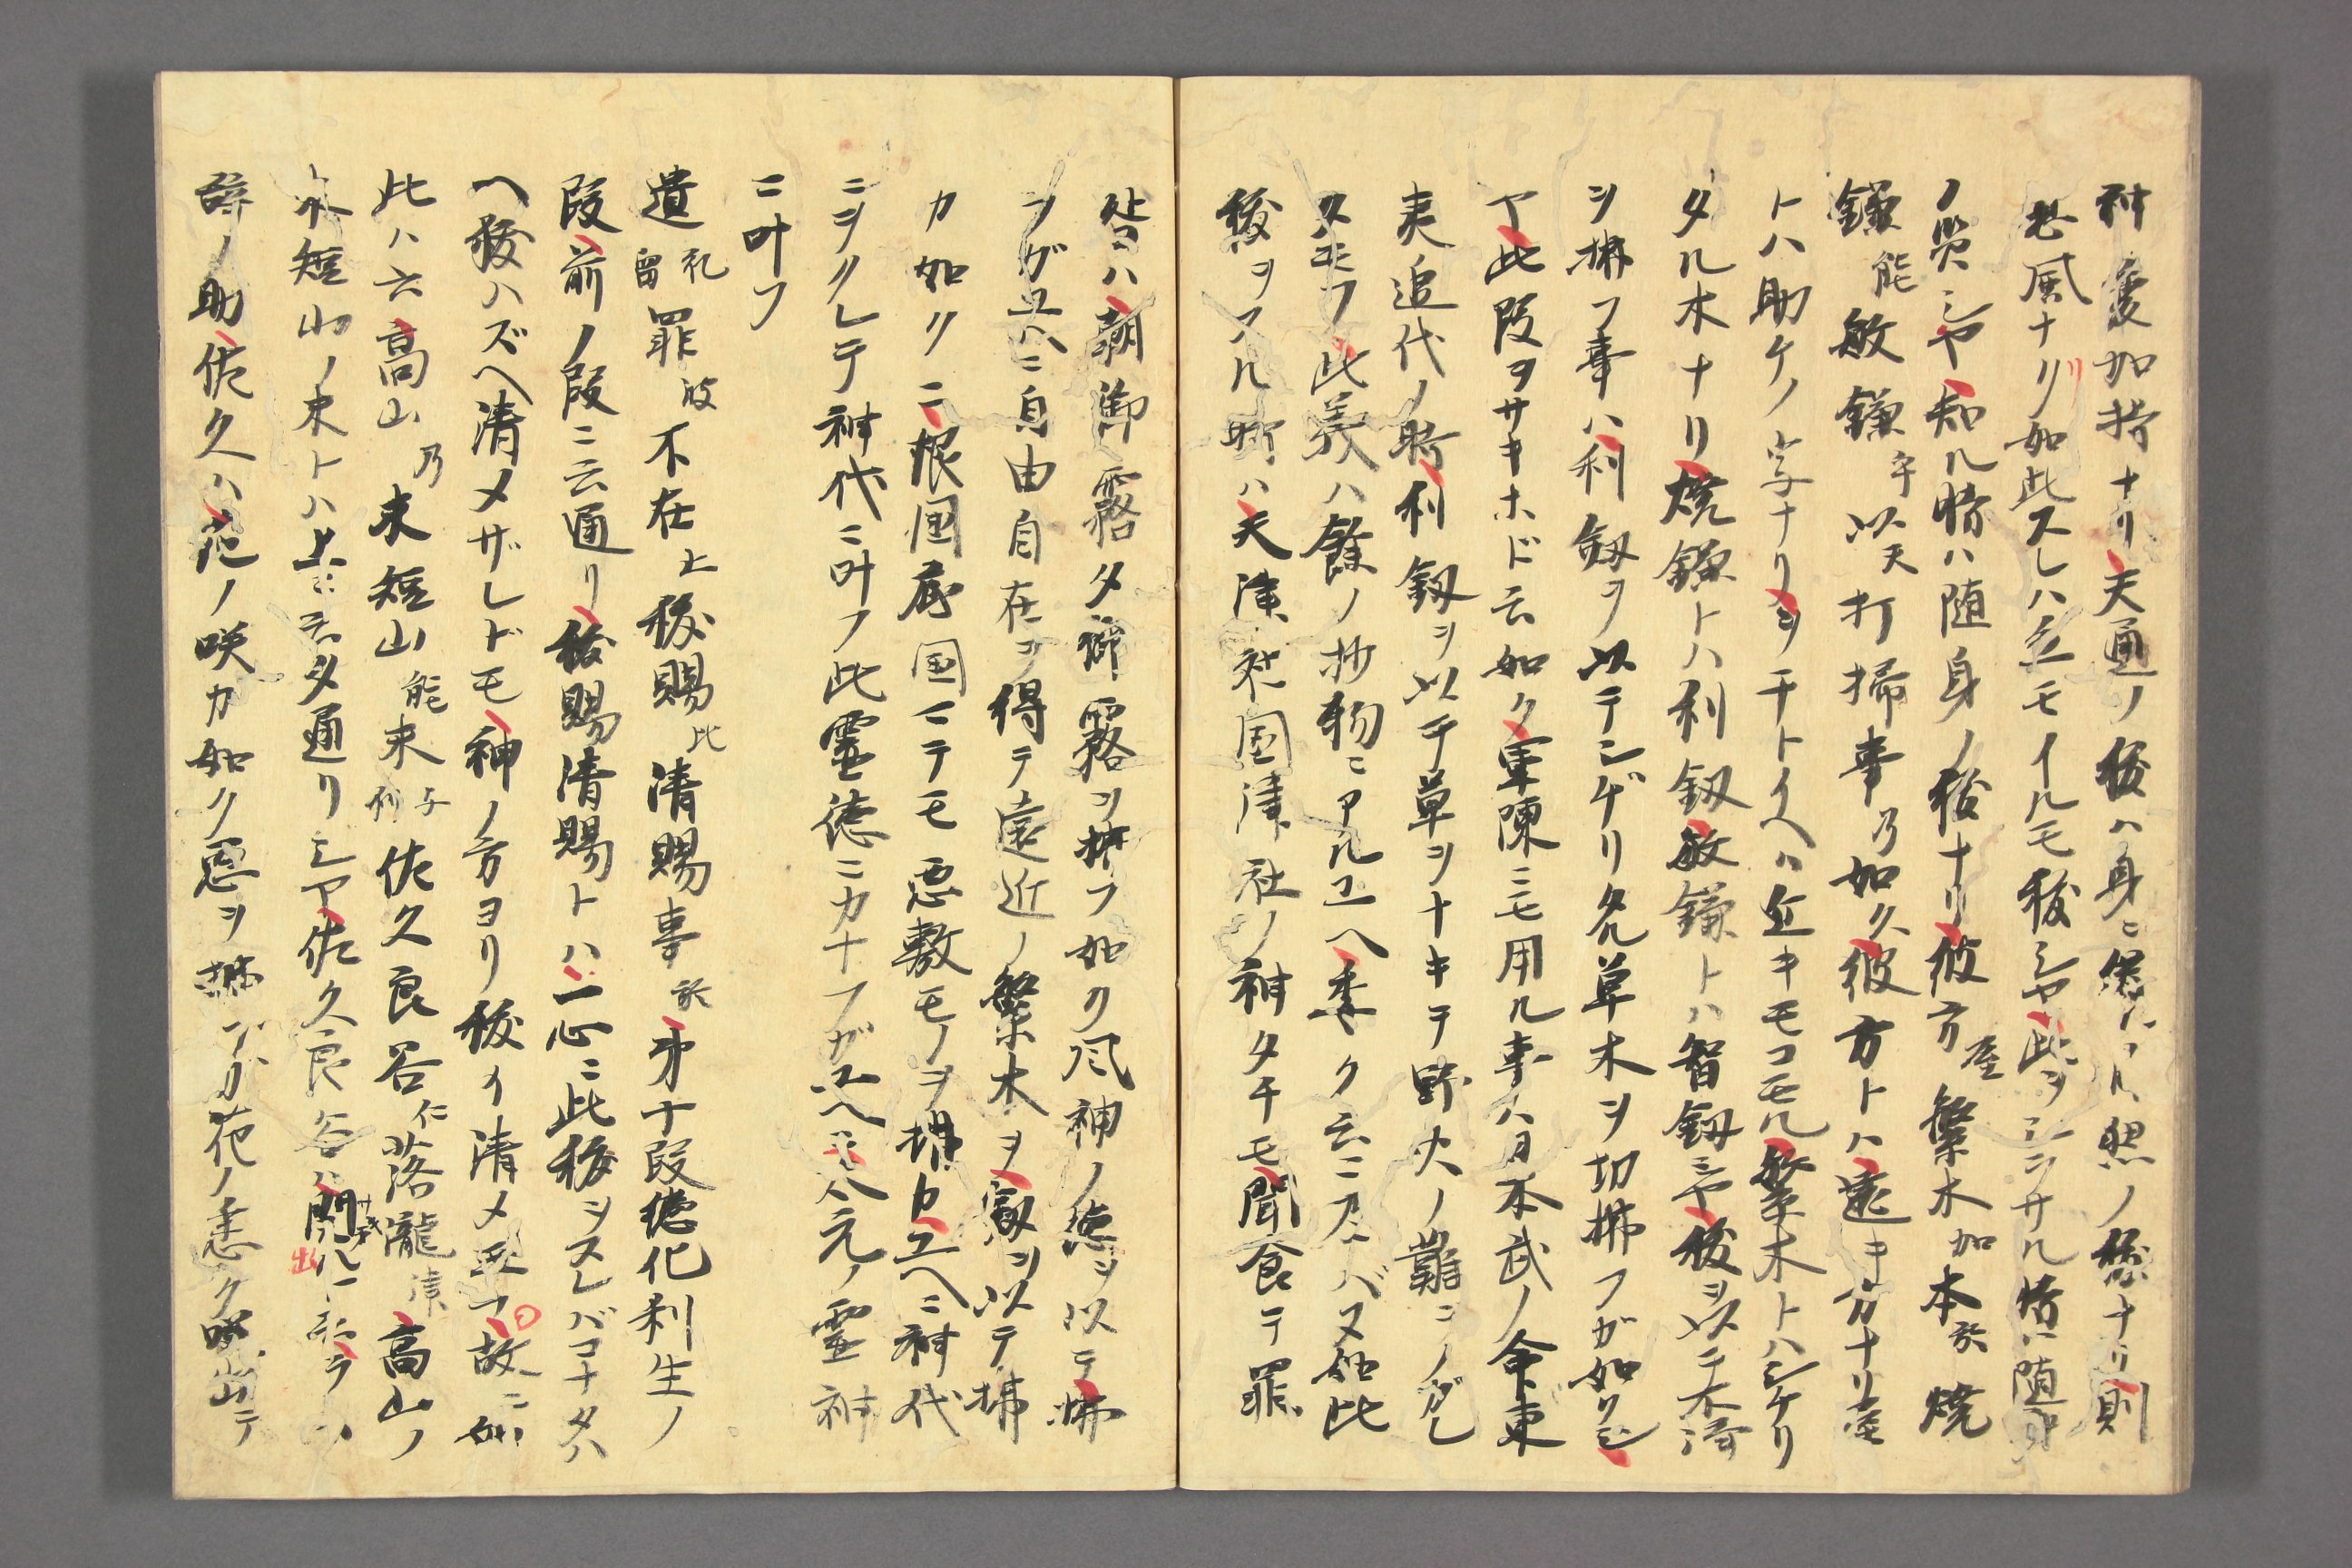 神変加持ナリ天通ノ祓ハ身ニ備ハル黙ノ祓ナリ則
老風ナリ如此スレハ立モイルモ祓シヤ此ヲシラサル時ハ随身
ノ災シヤ知ル時ハ随身ノ祓ナリ彼方屋繁木加本於焼
鎌能敏鎌乎以天打掃事乃如久彼方トハ遠キ方ナリ屋
トハ助ケノ字ナリヲチトイヘハ近キモコモル繁木トハシケリ
タル木ナリ焼鎌トハ利釼敏鎌トハ智釼シヤ祓ヲ以テ不浄
ヲ拂フ事ハ利釼ヲ以テシゲリタル草木ヲ切拂フガ如クシ
ヤ此段ヲサキホド云如ク軍陳ニモ用ル事ハ日本武ノ命東
夷追代ノ時利釼ヲ以テ草ヲナキテ野火ノ難ヲノガレ
タモフ此義ハ餘ノ抄物ニアルユヘ委ク云ニ及バヌ如此
祓ヲスル時ハ天津社国津社ノ神タチモ聞食テ罪
咎ハ朝御霧タ御霧ヲ拂フ如ク風神ノ徳ヲ以テ拂
フガユヘニ自由自在ヲ得テ遠近ノ繁木ヲ釼ヲ以テ拂
カ如クニ根国底国ニテモ悪敷モノヲ拂カユヘニ神代
ニヲクレテ神代ニ叶フ此霊徳ニカナフガユヘニ人元ノ霊神
ニ叶フ
遺礼留罪波不在上祓賜比清賜事於第十段徳化利生ノ
段前ノ段ニ云通リ祓賜清賜トハ一心ニ此祓ヲスレバコナタハ
ヘ祓ハズヘ清メザレドモ神ノ方ヨリ祓イ清メ玉フ故ニ如
此ハ六高山乃末短山能末与利佐久良谷仁落瀧津高山ノ
末短山ノ末トハ上ニ云タ通リシヤ佐久良谷ハ開ルニ
辞ノ助佐久ハ花ノ咲カ如ク悪ヲ拂フガ花ノ悉ク咲出テ